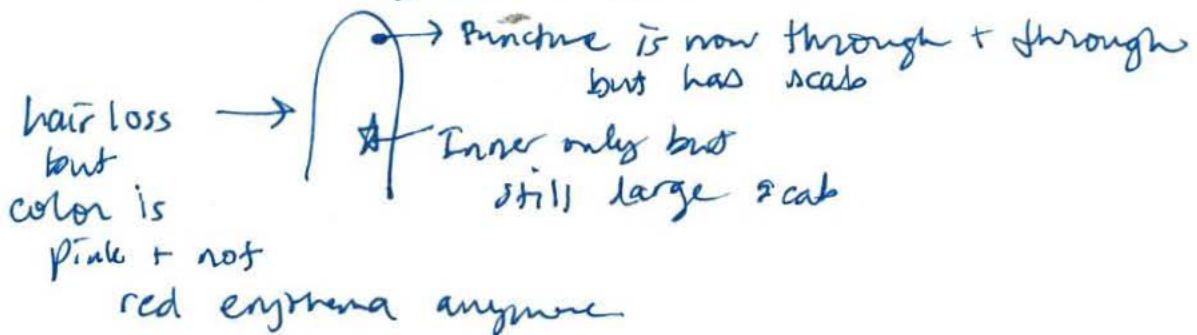 Puncture is now through + through
but has scab
hair loss
but
color is
pink + not
red erythema anymore
Inner only but
still large scab